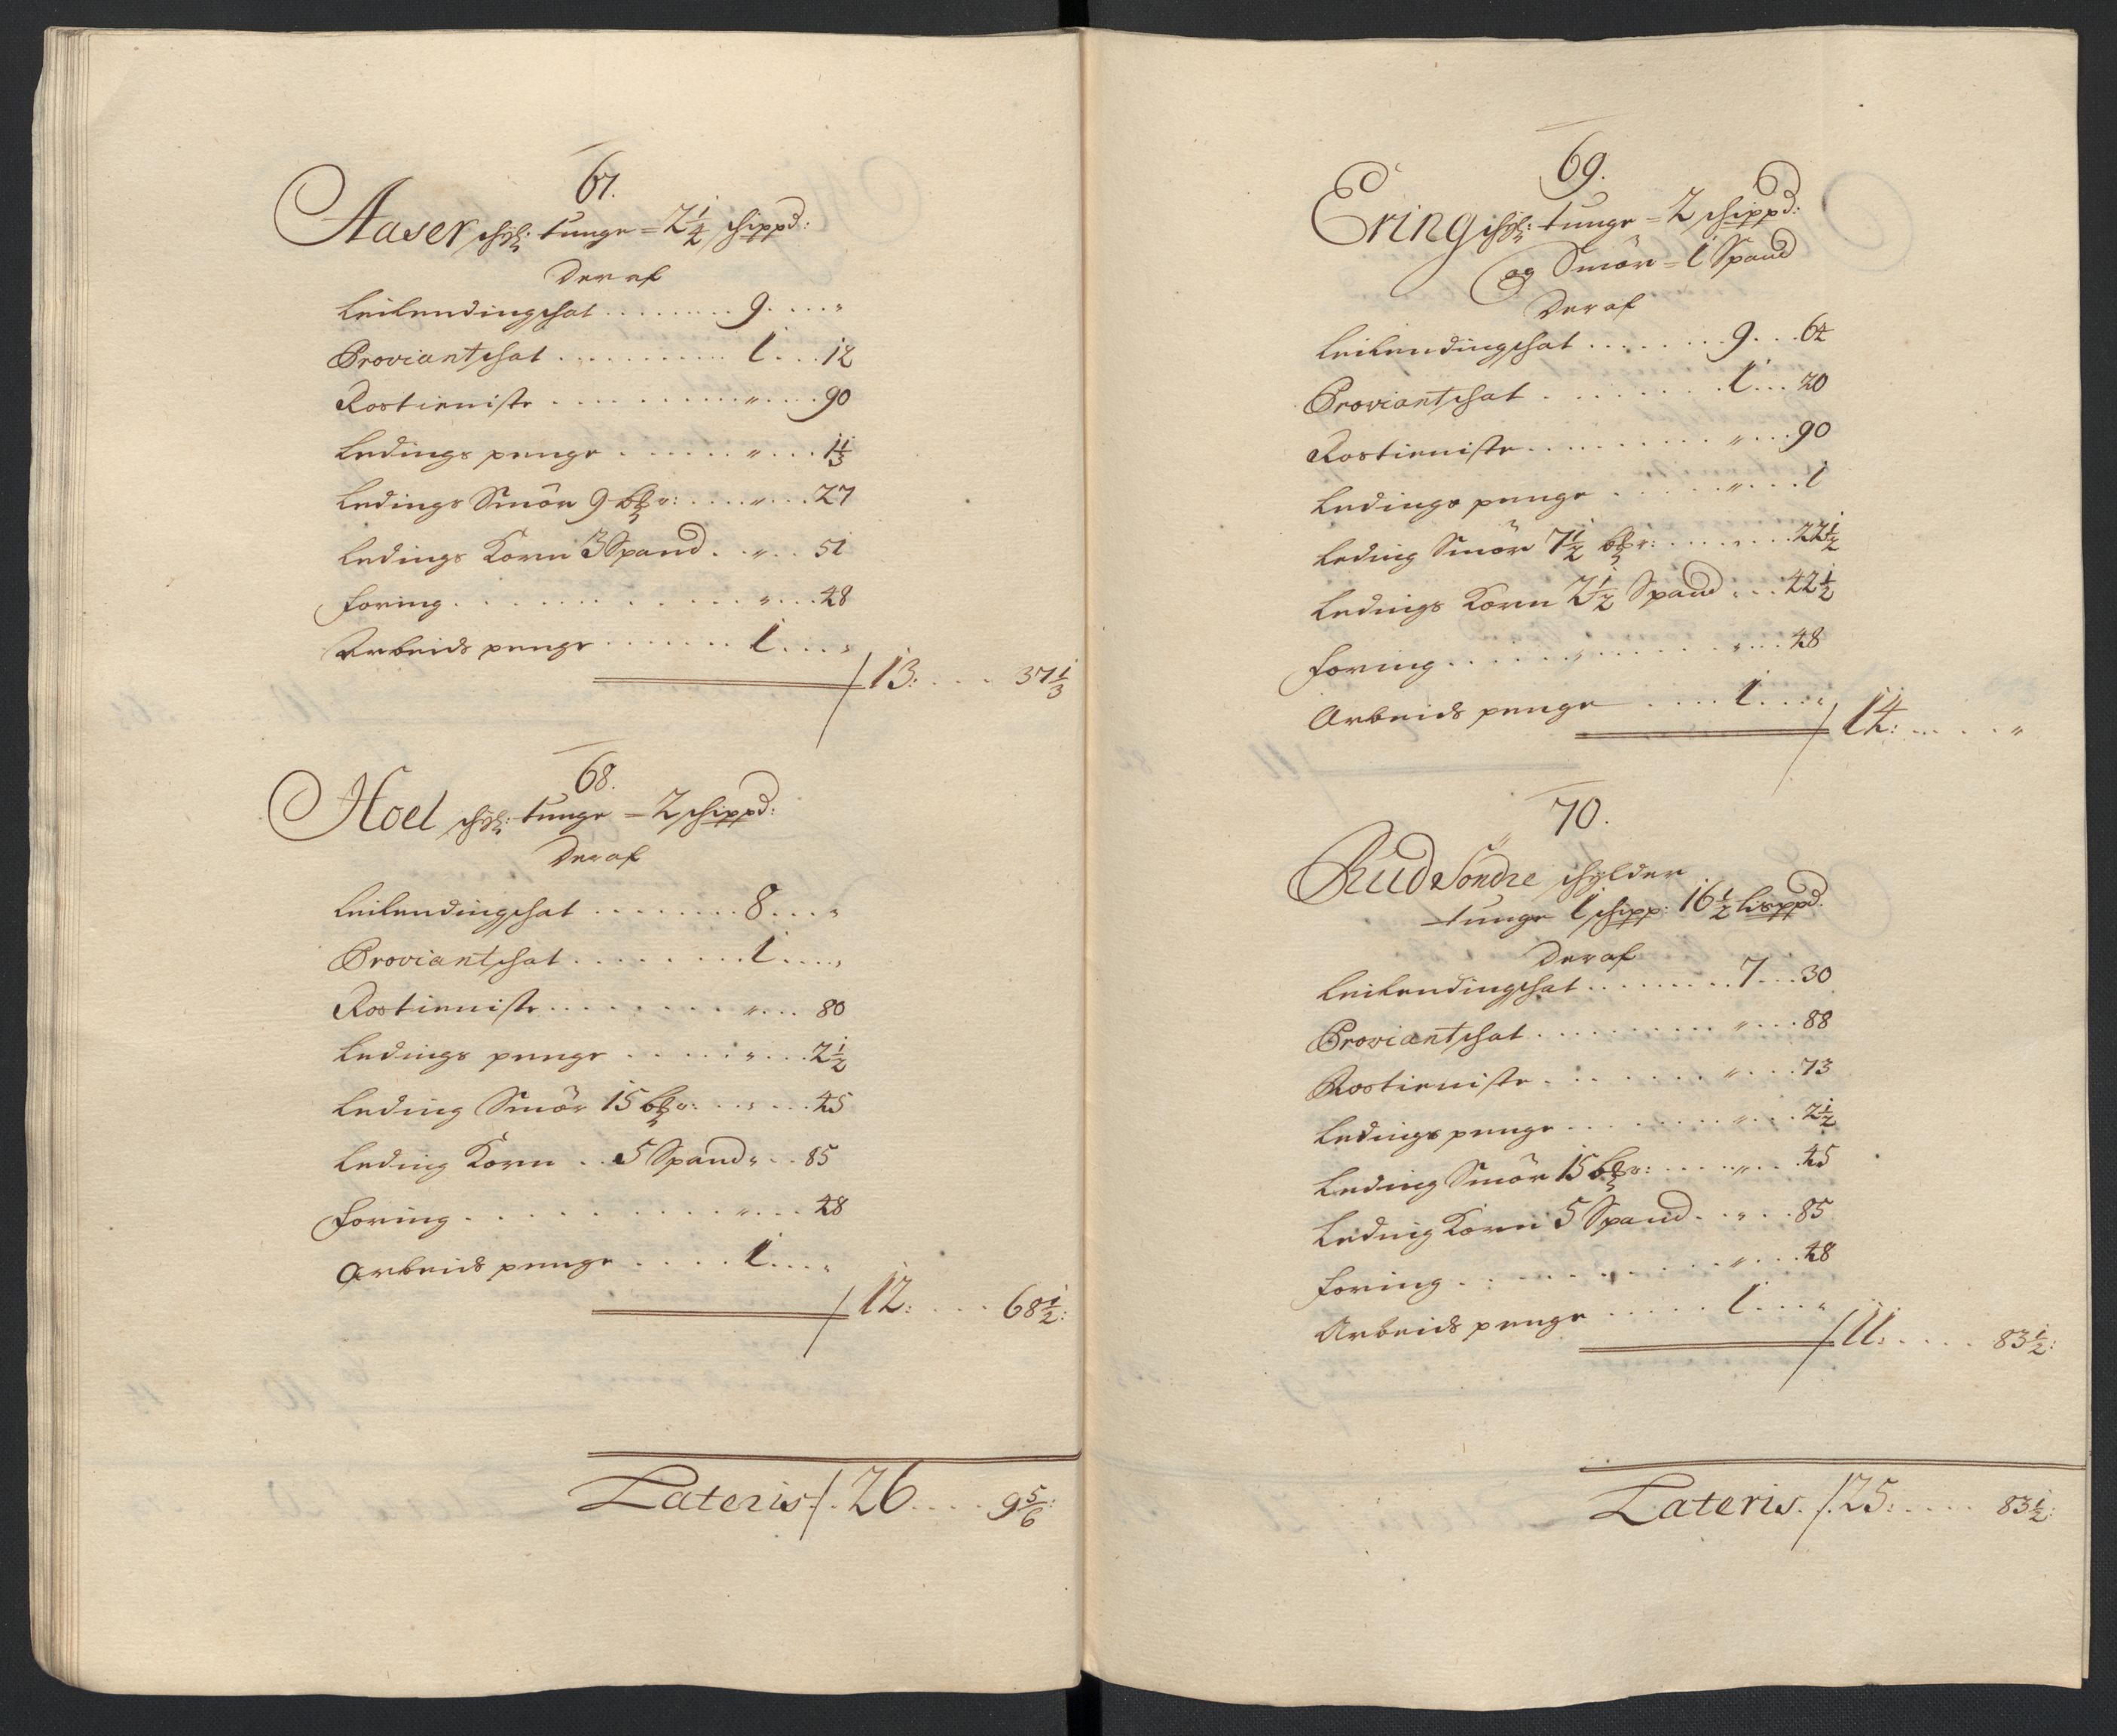 67.
Aaser schyl: tunge = 2 1/4 schippd:
Der af
Leilendingschat ........ 9. ... "
Proviantschat ............ 1 ... 12
Rostieniste .......... " .... 90
Ledings penge ...... " ... 1 1/3
Ledings Smör 9 bßr: .... " ... 27
Ledings Korn 3 Spand . " .. 51
foring ............ " ... 48
Arbeids penge ....... 1 ... "
13: ... 37 1/3
68.
Hoel schyl: tunge = 2 schippd:
Der af
Leilendingschat ........ 8 ... "
Proviantschat ........ 1 .... "
Rostieniste ........ " ... 80
Ledings penge ..... " ... 2 1/2
Leding Smör 15 bßr: ... " ... 45
Leding Korn .. 5 Spand " .. 85
foring .......... " ... 48
Arbeids penge .... 1 ... "
12: ... 68 1/2:
Lateris /. 26 .... 9 5/6:
69.
Ering schyl: tunge = 2 schippd:
og Smör = 1 Spand
Der af
Leilendingschat ........ 9 ... 64
Proviantschat ........ 1 ... 20
Rostieniste .......... " ... 90
Ledings penge ..... " ... 1
Leding Smör 7 1/2 bßr: ....... 22 1/2
Ledings Korn 2 1/2 Spand " ... 42 1/2
foring ........... " ... 48
Arbeids penge .... 1 ... "
14: .... "
70.
Rud Söndre schylder
tunge 1 schipp: 16 1/2 lisppd.
Der af
Leilendingschat ......... 7 ... 30
Proviantschat .......... " ... 88
Rostieniste ........ " ... 73
Ledings penge ........ " ... 2 1/2
Leding Smör 15 bßr: .... " ... 45
Leding Korn 5 Spand .. " ... 85
foring .......... " ... 48
Arbeids penge ..... 1 ... "
11: .... 83 1/2:
Lateris. /. 25: .... 83 1/2: